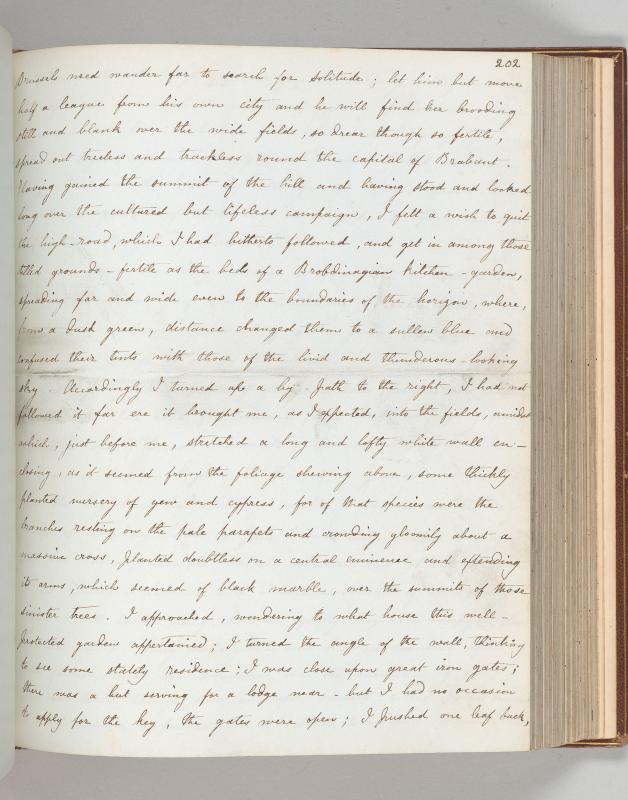 202
Brussels need wander far to search for solitude ; let him but move
half a league from his own city and he will find her brooding
still and blank over the wide fields, so drear though so fertile,
spread out treeless and trackless round the capital of Brabant.
Having gained the summit of the hill and having stood and looked
long over the cultured but lifeless campaign, I felt a wish to quit
the high-road, which I had hitherto followed, and get in among those
tilled grounds - fertile as the beds of a Brobdinagian kitchen-garden,
spreading far and wide even to the boundaries of the horizon, where,
from a dusk green, distance changed them to a sullen blue and
confused their tints with those of the livid and thunderous-looking
sky. Accordingly I turned up a by-path to the right, I had not
followed it far ere it brought me, as I expected, into the fields, amidst
which, just before me, stretched a long and lofty white wall en-
closing, as it seemed from the foliage shewing above, some thickly
planted nursery of yew and cypress, for of that species were the
branches resting on the pale parapets and crowding gloomily about a
massive cross, planted doubtless on a central eminence and extending
its arms, which seemed of black marble, over the summits of those
sinister trees. I approached, wondering to what house this well-
protected garden appertained; I turned the angle of the wall, thinking
to see some stately residence; I was close upon great iron gates;
there was a hut serving for a lodge near - but I had no occasion
to apply for the key, the gates were open; I pushed one leaf back,